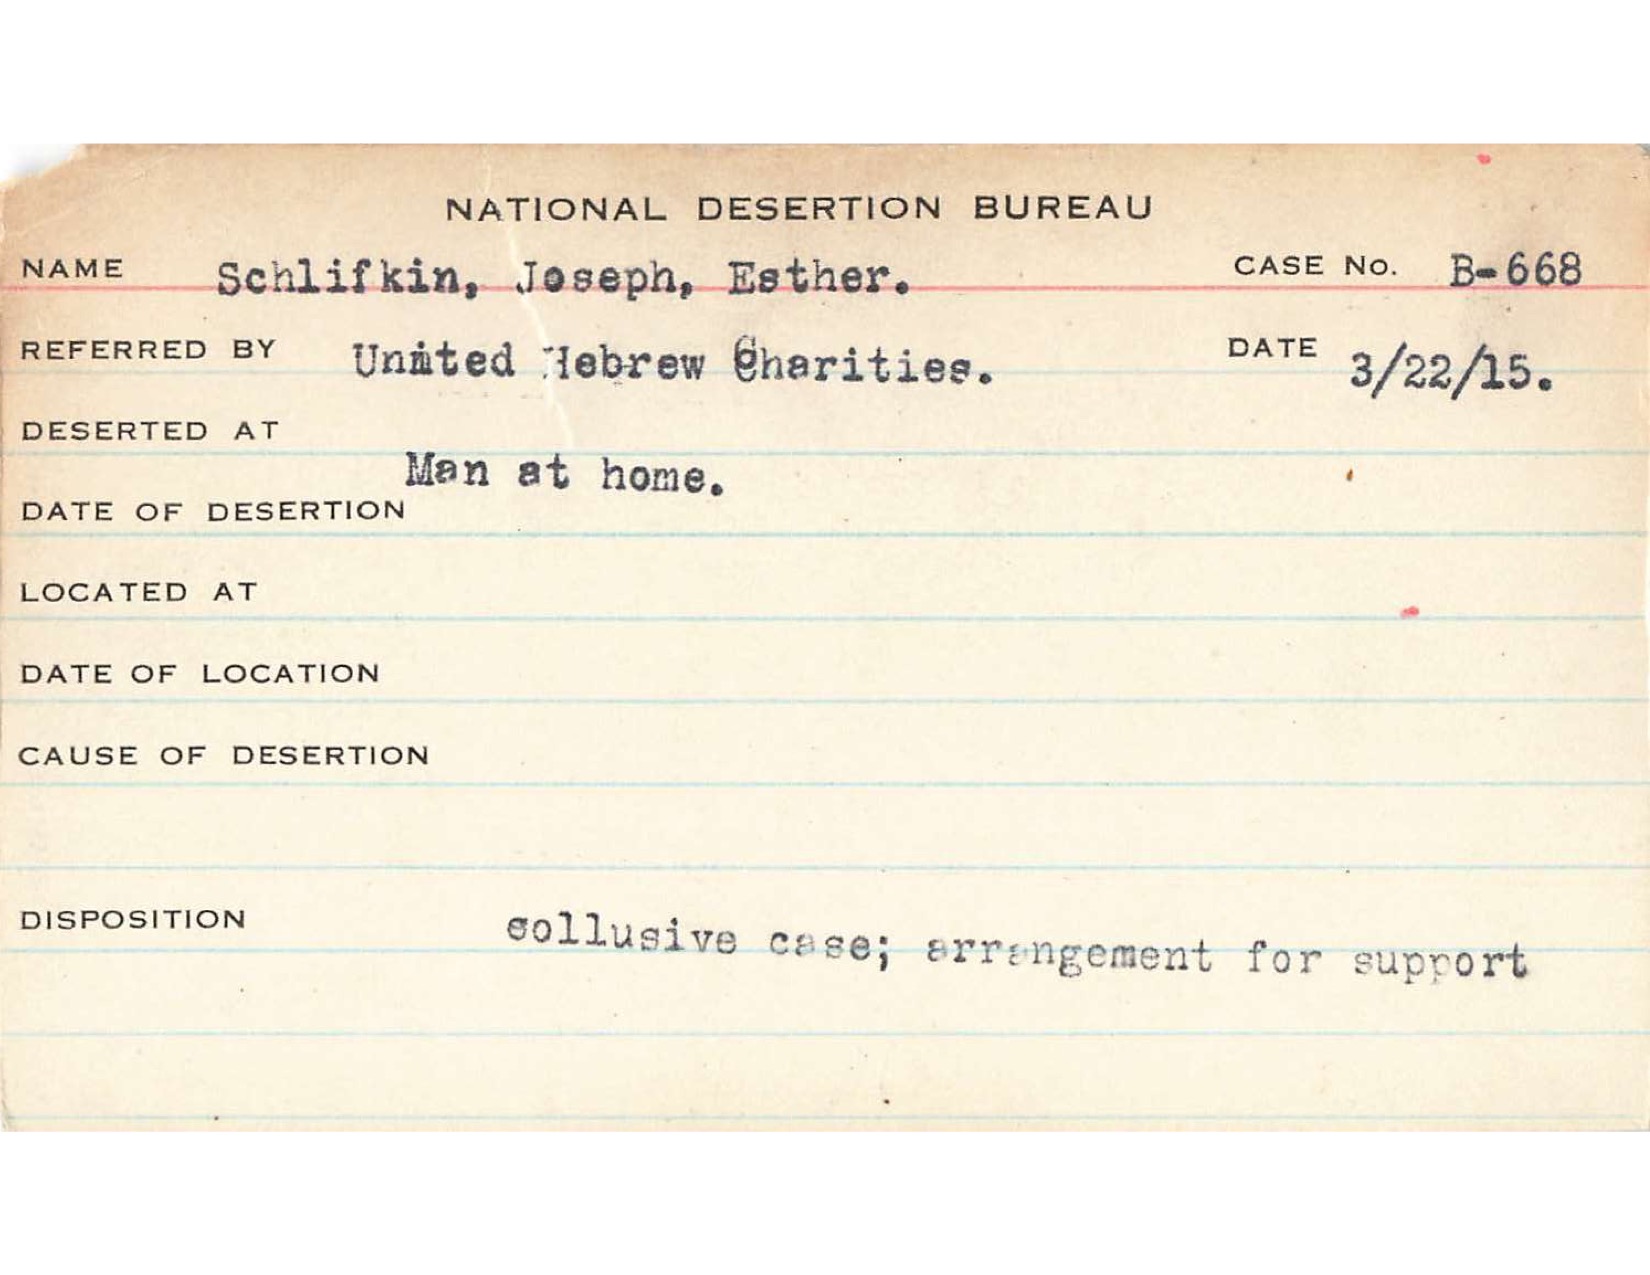 NATIONAL DESERTION BUREAU
NAME Schlifkin, Joseph, Esther. CASE No. B-668
REFERRED BY United Hebrew Charities. DATE 3/22/15.
DESERTED AT
Man at home.
DATE OF DESERTION
LOCATED AT
DATE OF LOCATION
CAUSE OF DESERTION
DISPOSITION collusive case; arrangement for support